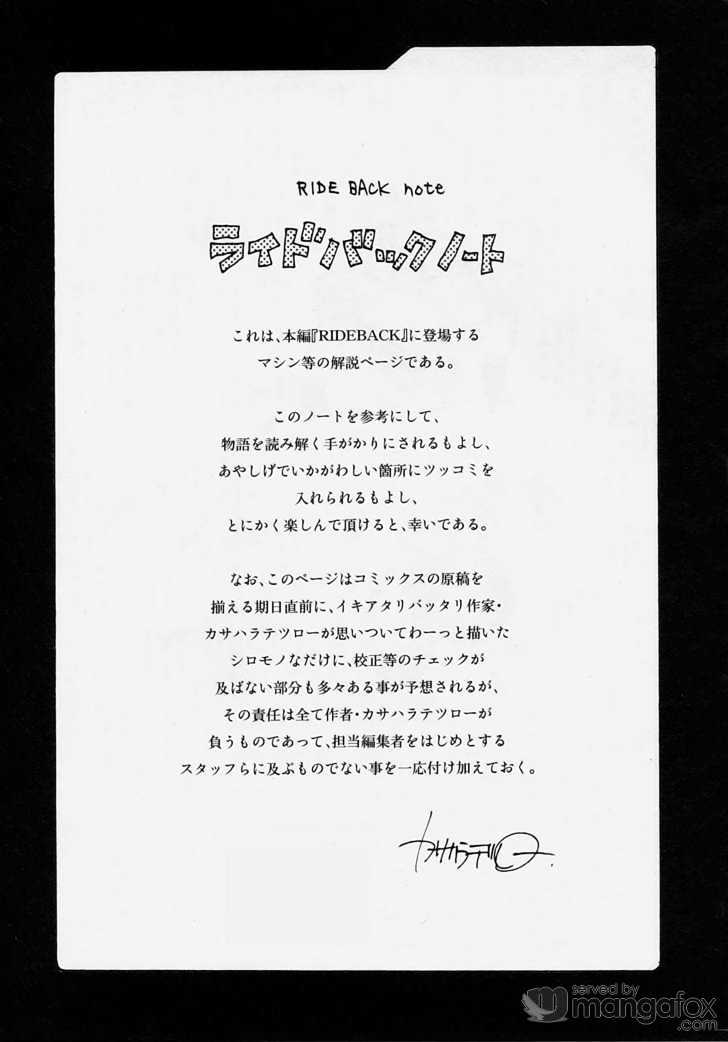 RIDE BACK note
ライドバックノート
これは、本編『RIDEBACK』に登場する
マシン等の解説ページである。
このノートを参考にして、
物語を読み解く手がかりにされるもよし、
あやしげでいかがわしい箇所にツッコミを
入れられるもよし、
とにかく楽しんで頂けると、幸いである。
なお、このページはコミックスの原稿を
揃える期日直前に、イキアタリバッタリ作家・
カサハラテツローが思いついてわーっと描いた
シロモノなだけに、校正等のチェックが
及ばない部分も多々ある事が予想されるが、
その責任は全て作者・カサハラテツローが
負うものであって、担当編集者をはじめとする
スタッフらに及ぶものでない事を一応付け加えておく。
カサハラテツロー
served by
mangafox
.com